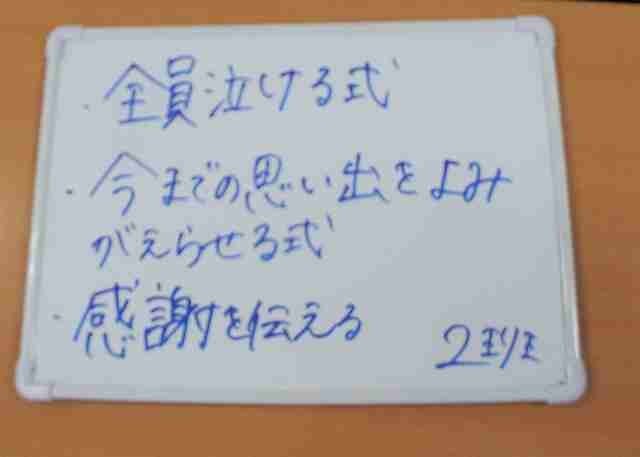 ・全員泣ける式
・今までの思い出をよみ
がえらせる式
・感謝を伝える
2班